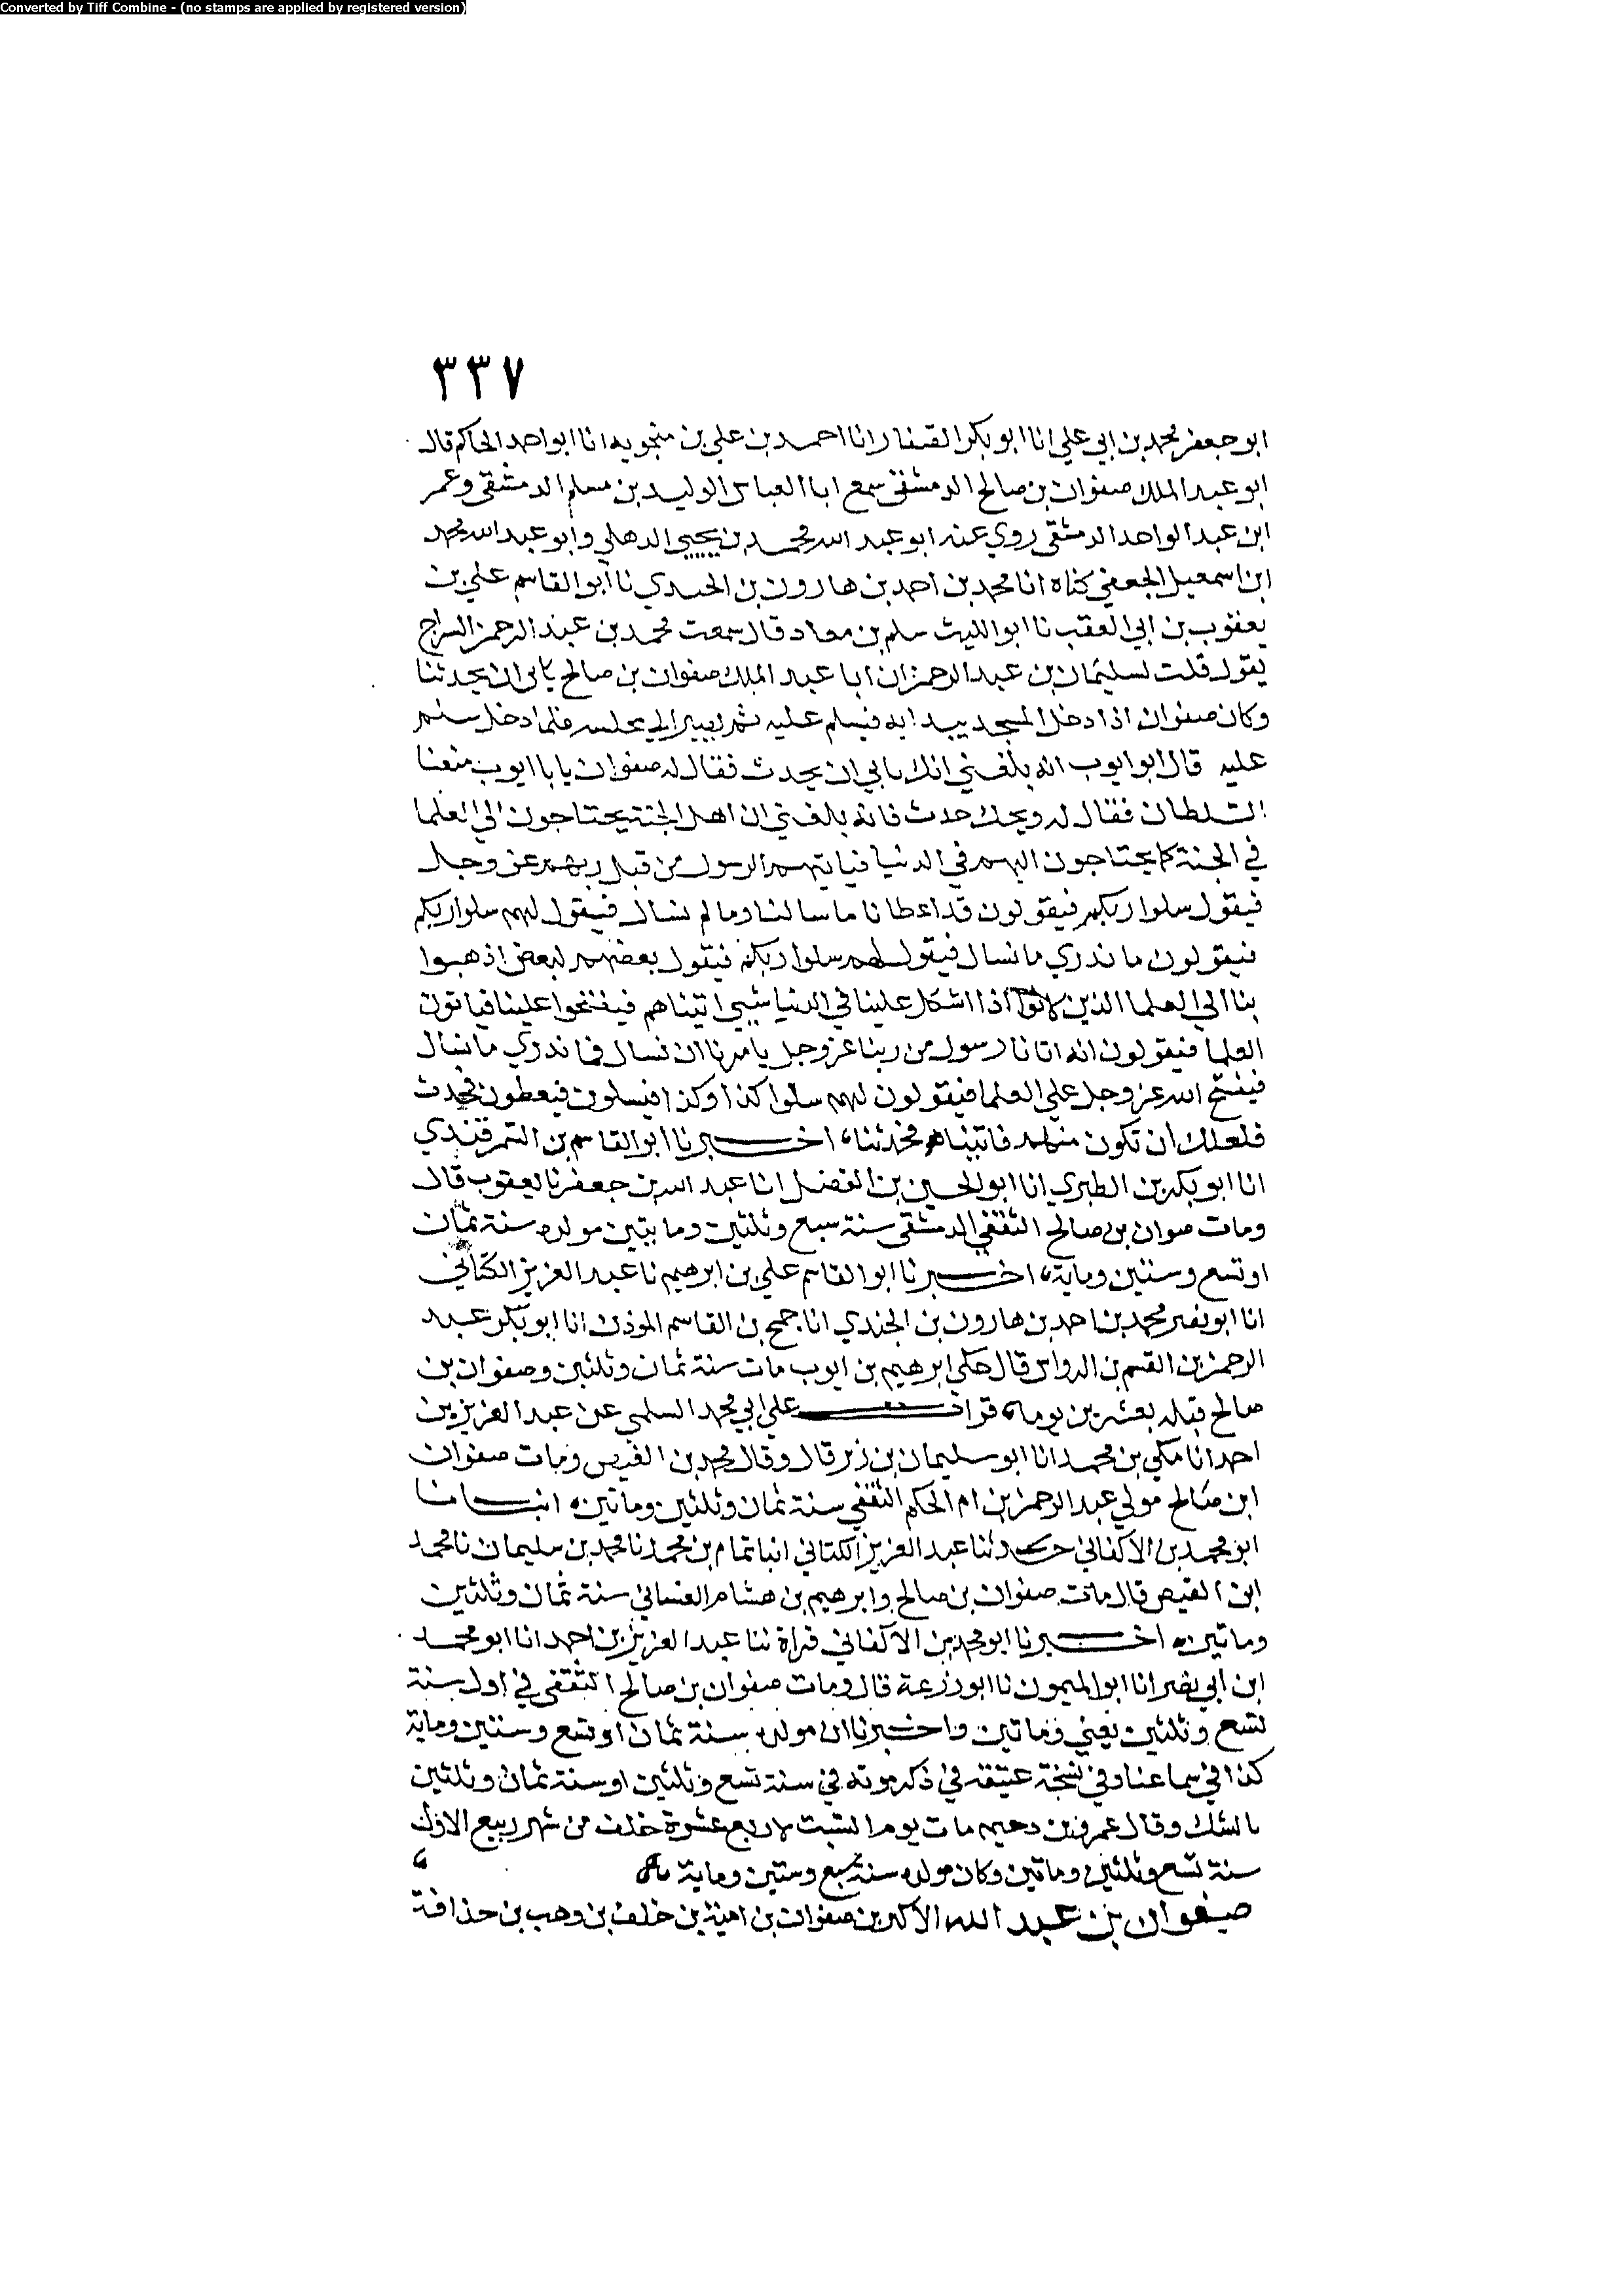 Converted by Tiff Combine - (no stamps are applied by registered version)
٣٣٧
ابو جعفر محمد بن ابي علي انا ابو بكر الصفار انا احمد بن علي بن منجويه انا ابو احمد الحاكم قال
ابو عبد الملك صفوان بن صالح الدمشقي سمع ابا العباس الوليد بن مسلم الدمشقي وعمر
ابن عبد الواحد الدمشقي روي عنه ابو عبد الله محمد بن يحيي الدهلي وابو عبد الله محمد
ابن اسمعيل الجعفي كناه انا محمد بن احمد بن هارون بن الجندي نا ابو القاسم علي بن
يعقوب بن ابي العقب نا ابو الليث سلم بن معاد قال سمعت محمد بن عبد الرحمن السراج
يقول قلت لسليمان بن عبد الرحمن ان ابا عبد الملك صفوان بن صالح يابي ان يحدثنا
وكان صفوان اذا دخل المسجد يبدا به فيسلم عليه ثم يصير الي مجلسه فلما دخل سلم
عليه قال ابو ايوب انه بلغني انك تابي ان تحدث فقال له صفوان يابا ايوب منعنا
السلطان فقال له ويحك حدث فانه بلغني ان اهل الجنة يحتاجون الي العلما
في الجنة كما يحتاجون اليهم في الدنيا فياتيهم الرسول من قبل ربهم عز وجل
فيقول سلوا ربكم فيقولون قد اعطانا ما سالنا وما لم نسال فيقول لهم سلوا ربكم
فيقولون ما ندري ما نسال فيقول لهم سلوا ربكم فيقول بعضهم لبعض اذهبوا
بنا الي العلما الذين كانوا اذا اشكل علينا في الدنيا شيي اتيناهم فيفتحوا علينا فياتون
العلما فيقولون انه اتانا رسول من ربنا عز وجل يامرنا ان نسال فما ندري ما نسال
فيفتح الله عز وجل علي العلما فيقولون لهم سلوا كذا وكذا فيسلون فيعطون فحدث
فلعلك ان تكون منهم فاتيناه فحدثنا، اخبرنا ابو القاسم بن السمرقندي
انا ابو بكر بن الطبري انا ابو الحسين بن الفضل انا عبد الله بن جعفر نا يعقوب قال
ومات صوان بن صالح الثقفي الدمشقي سنة سبع وثلثين وما ييتين مولده سنة ثمان
او تسع وستين وماية، اخبرنا ابو القاسم علي بن ابرهيم نا عبد العزيز الكتاني
انا ابو نصر محمد بن احمد بن هارون بن الجندي انا جمح بن القاسم الموذن انا ابو بكر عبد
الرحمن بن القسم بن الرواس قال حكي ابرهيم بن ايوب مات سنة ثمان وثلثين وصفوان بن
صالح قبله بعشرين يوما، قرات علي ابي محمد السلمي عن عبد العزيز بن
احمد انا مكي بن محمد انا ابو سليمان بن زبر قال وقال محمد بن الفيص ومات صفوان
ابن صالح مولي عبد الرحمن بن ام الحكم الثقفي سنة ثمان وثلثين وماتين، انبانا
ابو محمد بن الاكفاني حدثنا عبد العزيز الكتاني انبا تمام بن محمد نا محمد بن سليمان نا محمد
ابن الفيص قال مات صفوان بن صالح وابرهيم بن هشام الغساني سنة ثمان وثلثين
وماتين، اخبرنا ابو محمد بن الاكفاني قراة ثنا عبد العزيز بن احمد انا ابو محمد
ابن ابي نصر انا ابو الميمون نا ابو زرعة قال ومات صفوان بن صالح الثقفي في اول سنة
تسع وثلثين يعني وماتين واخبرنا ان مولده سنة ثمان او تسع وستين وماية
كذا في سماعنا وفي نسخة عتيقه في ذكر موته في سنة تسع وثلثين او سنة ثمان وثلثين
بالشك وقال عمرو بن دحيم مات يوم السبت لاربع عشرة خلت من شهر ربيع الاول
سنة تسع وثلثين وماتين وكان مولده سنة سبع وستين وماية
صفوان بن عبد الله الاكبر بن صفوان بن امية بن خلف بن وهب بن حذافة